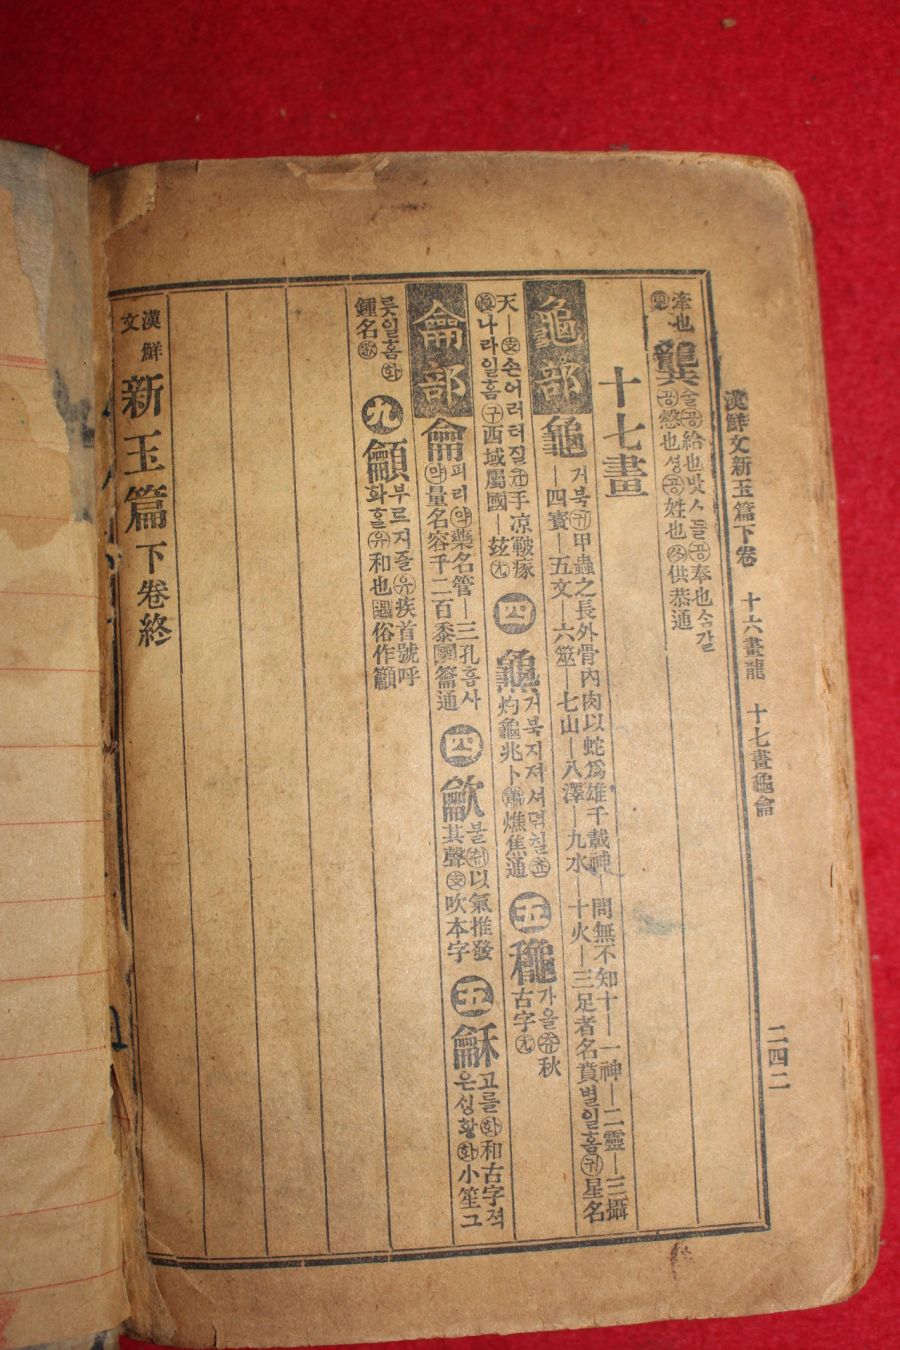 漢鮮文新玉篇下卷 十六畫龍 十七畫龜龠 二四二
牽也
龔 給也 奉也 慤也 姓也 供恭通
十七畫
龜部
龜 거북㉠甲蟲之長外骨內肉以蛇爲雄千載神
問無不知十｜一神｜二靈｜三攝
｜四寶｜五文｜六筮｜七山｜八澤｜九水｜十火｜三足者名賁별일홈귀星名
天｜支손어러터질균手凍皸瘃
나라일홈구西域屬國｜玆尤
四 거북지져서
灼龜兆卜 燋焦通
五 龝 가을츄秋
古字尤
龠部
龠 피리약樂名管｜三孔홉사
약量名容千二百黍 籥通
四 龡 불취以氣推發
其聲支吹本字
五 龢 고를화和古字젹
은싱황화小笙그
릇일홈화
鍾名歌
九 龥 부르지즐유疾首號呼
화할유和也 俗作籲
漢鮮文 新玉篇 下卷終